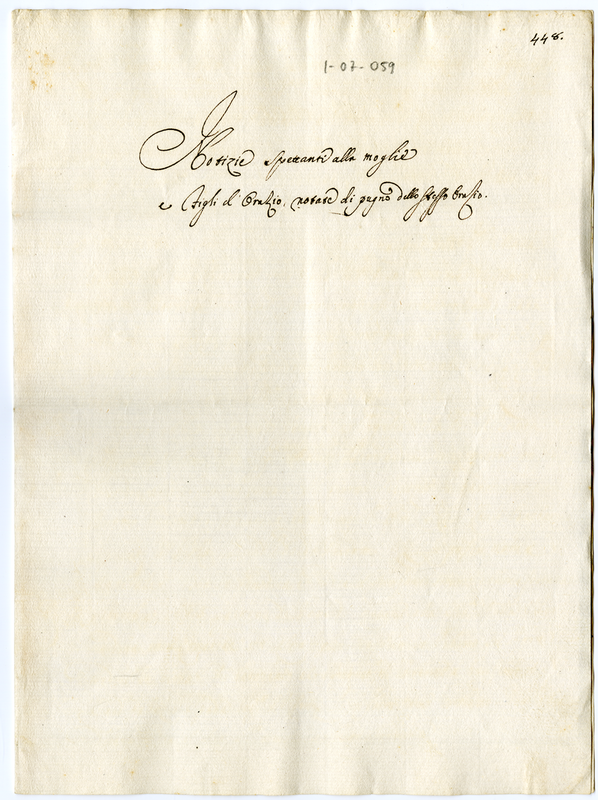 448.
1-07-059
Notizie spettanti alla moglie
e figli d'Orazio, notate di pugno dello stesso Orazio.